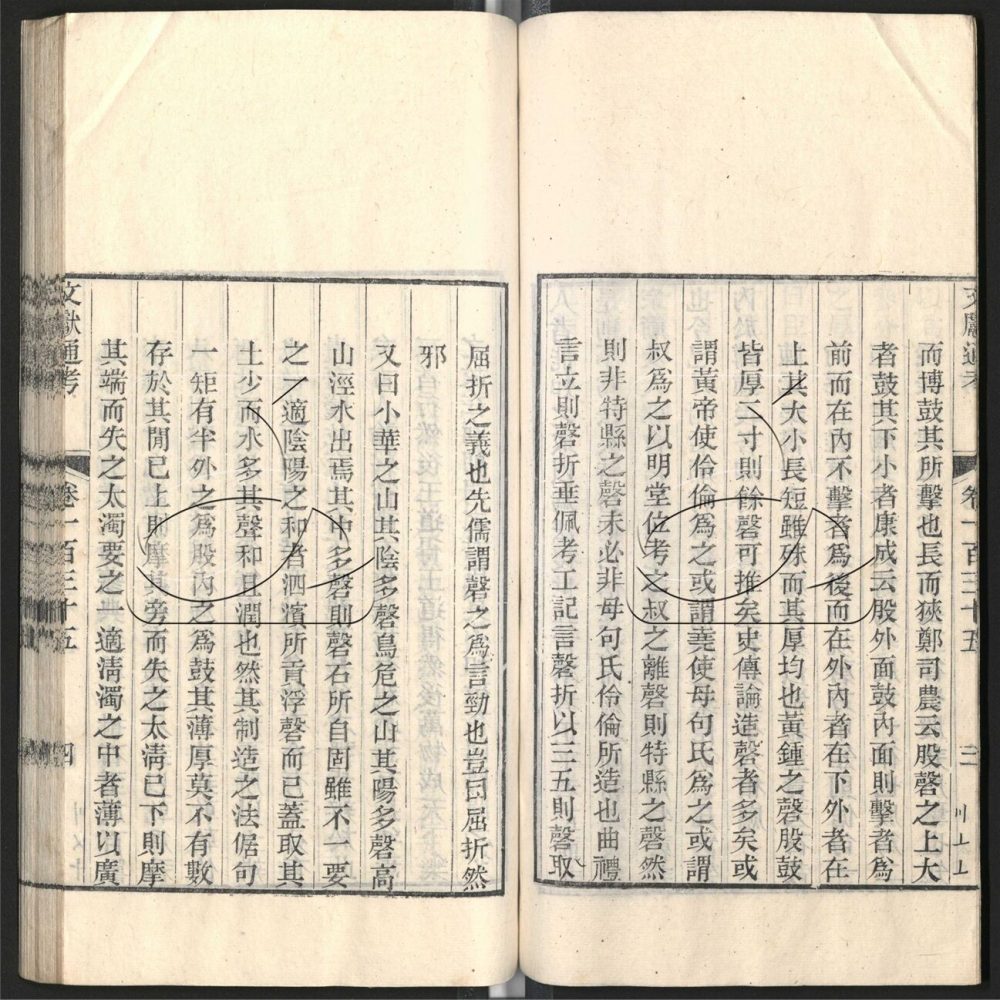 文獻通考 卷一百三十五 三
而博鼓其所擊也長而狹鄭司農云股磬之上大
者鼓其下小者康成云股外面鼓內面則擊者爲
前而在內不擊者爲後而在外內者在下外者在
上其大小長短雖殊而其厚均也黃鍾之磬股鼓
皆厚二寸則餘磬可推矣史傳論造磬者多矣或
謂黃帝使伶倫爲之或謂堯使母句氏爲之或謂
叔爲之以明堂位考之叔之離磬則特縣之磬然
則非特縣之磬未必非母句氏伶倫所造也曲禮
言立則磬折垂佩考工記言磬折以三五則磬取
屈折之義也先儒謂磬之爲言勁也豈因屈折然
邪
又曰小華之山其陰多磬鳥危之山其陽多磬高
山涇水出焉其中多磬則磬石所自固雖不一要
之一適陰陽之和者泗濱所貢浮磬而已蓋取其
土少而水多其聲和且潤也然其制造之法倨句
一矩有半外之爲股內之爲鼓其薄厚莫不有數
存於其閒已上則摩其旁而失之太淸已下則摩
其端而失之太濁要之 適淸濁之中者薄以廣
文獻通考 卷一百三十五 四